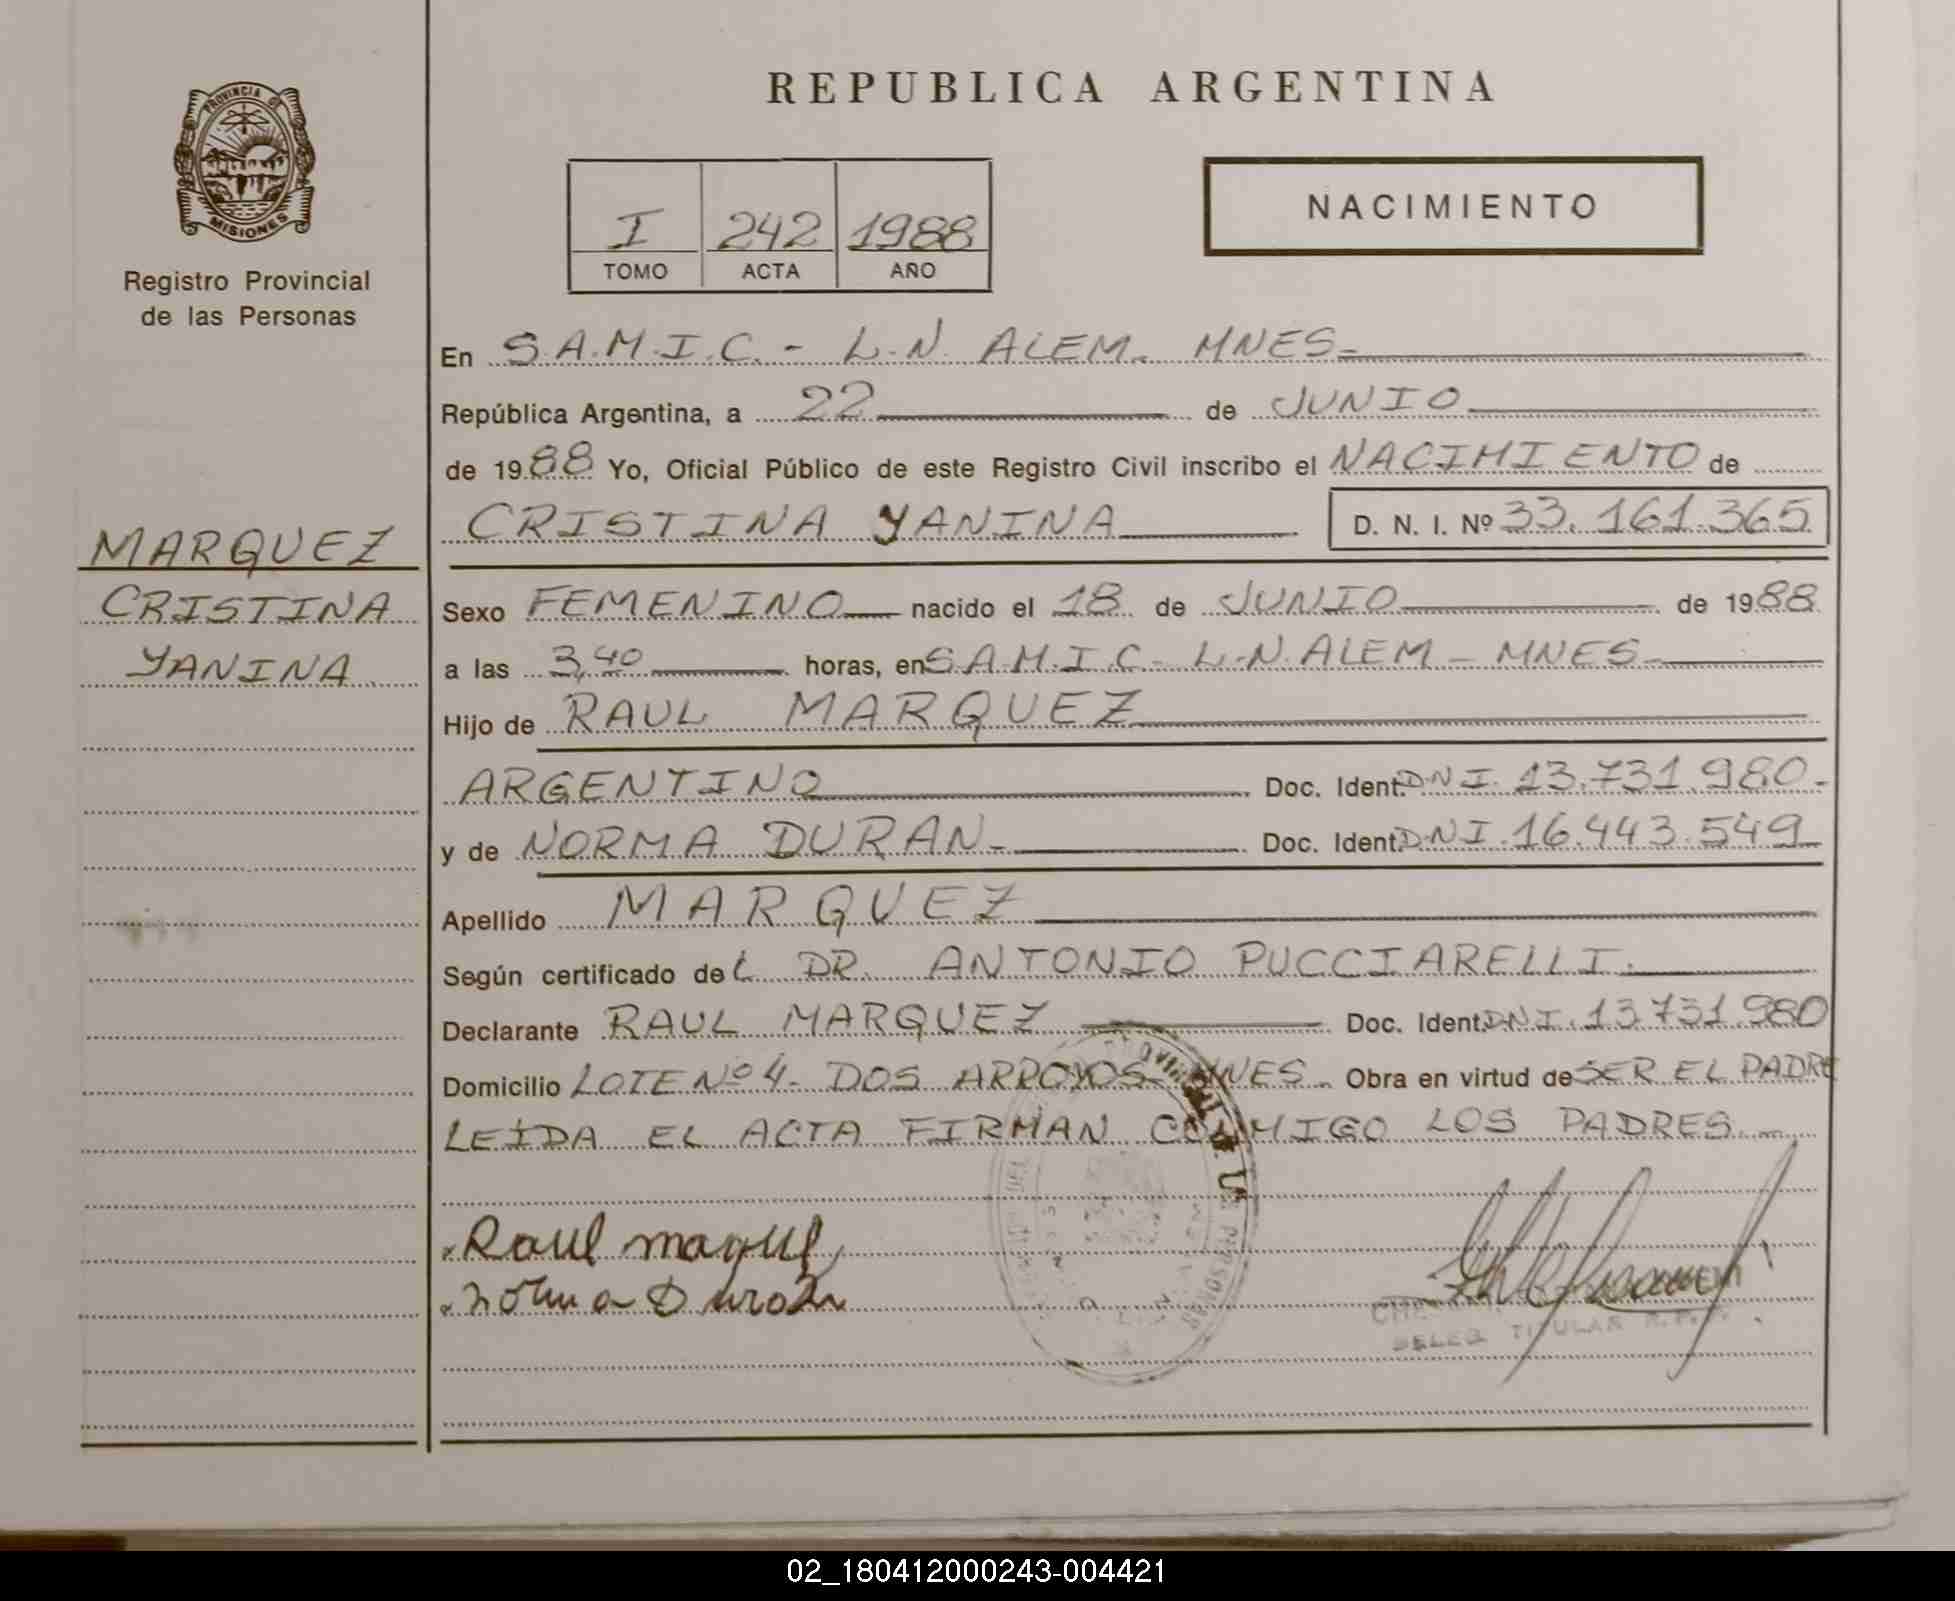 REPUBLICA ARGENTINA
PROVINCIA DE
MISIONES
Registro Provincial
de las Personas
I 242 1988
TOMO ACTA AÑO
NACIMIENTO
En S.A.M.I.C. - L.N. ALEM. MNES-
República Argentina, a 22 de JUNIO
de 1988 Yo, Oficial Público de este Registro Civil inscribo el NACIMIENTO de
CRISTINA YANINA D. N. I. Nº 33.161.365
MARQUEZ
CRISTINA
YANINA
Sexo FEMENINO nacido el 18 de JUNIO de 1988
a las 3,40 horas, en S.A.M.I.C- L.N. ALEM - MNES-
Hijo de RAUL MARQUEZ
ARGENTINO Doc. Ident. DNI. 13.731.980-
y de NORMA DURAN- Doc. Ident. DNI. 16.443.549
Apellido MARQUEZ
Según certificado del DR. ANTONIO PUCCIARELLI.
Declarante RAUL MARQUEZ Doc. Ident. DNI. 13.731.980
Domicilio LOTE Nº 4- DOS ARROYOS- MNES- Obra en virtud de SER EL PADRE
LEIDA EL ACTA FIRMAN CONMIGO LOS PADRES.-
Raul
Norma
TITULAR R.P.P.
02_180412000243-004421